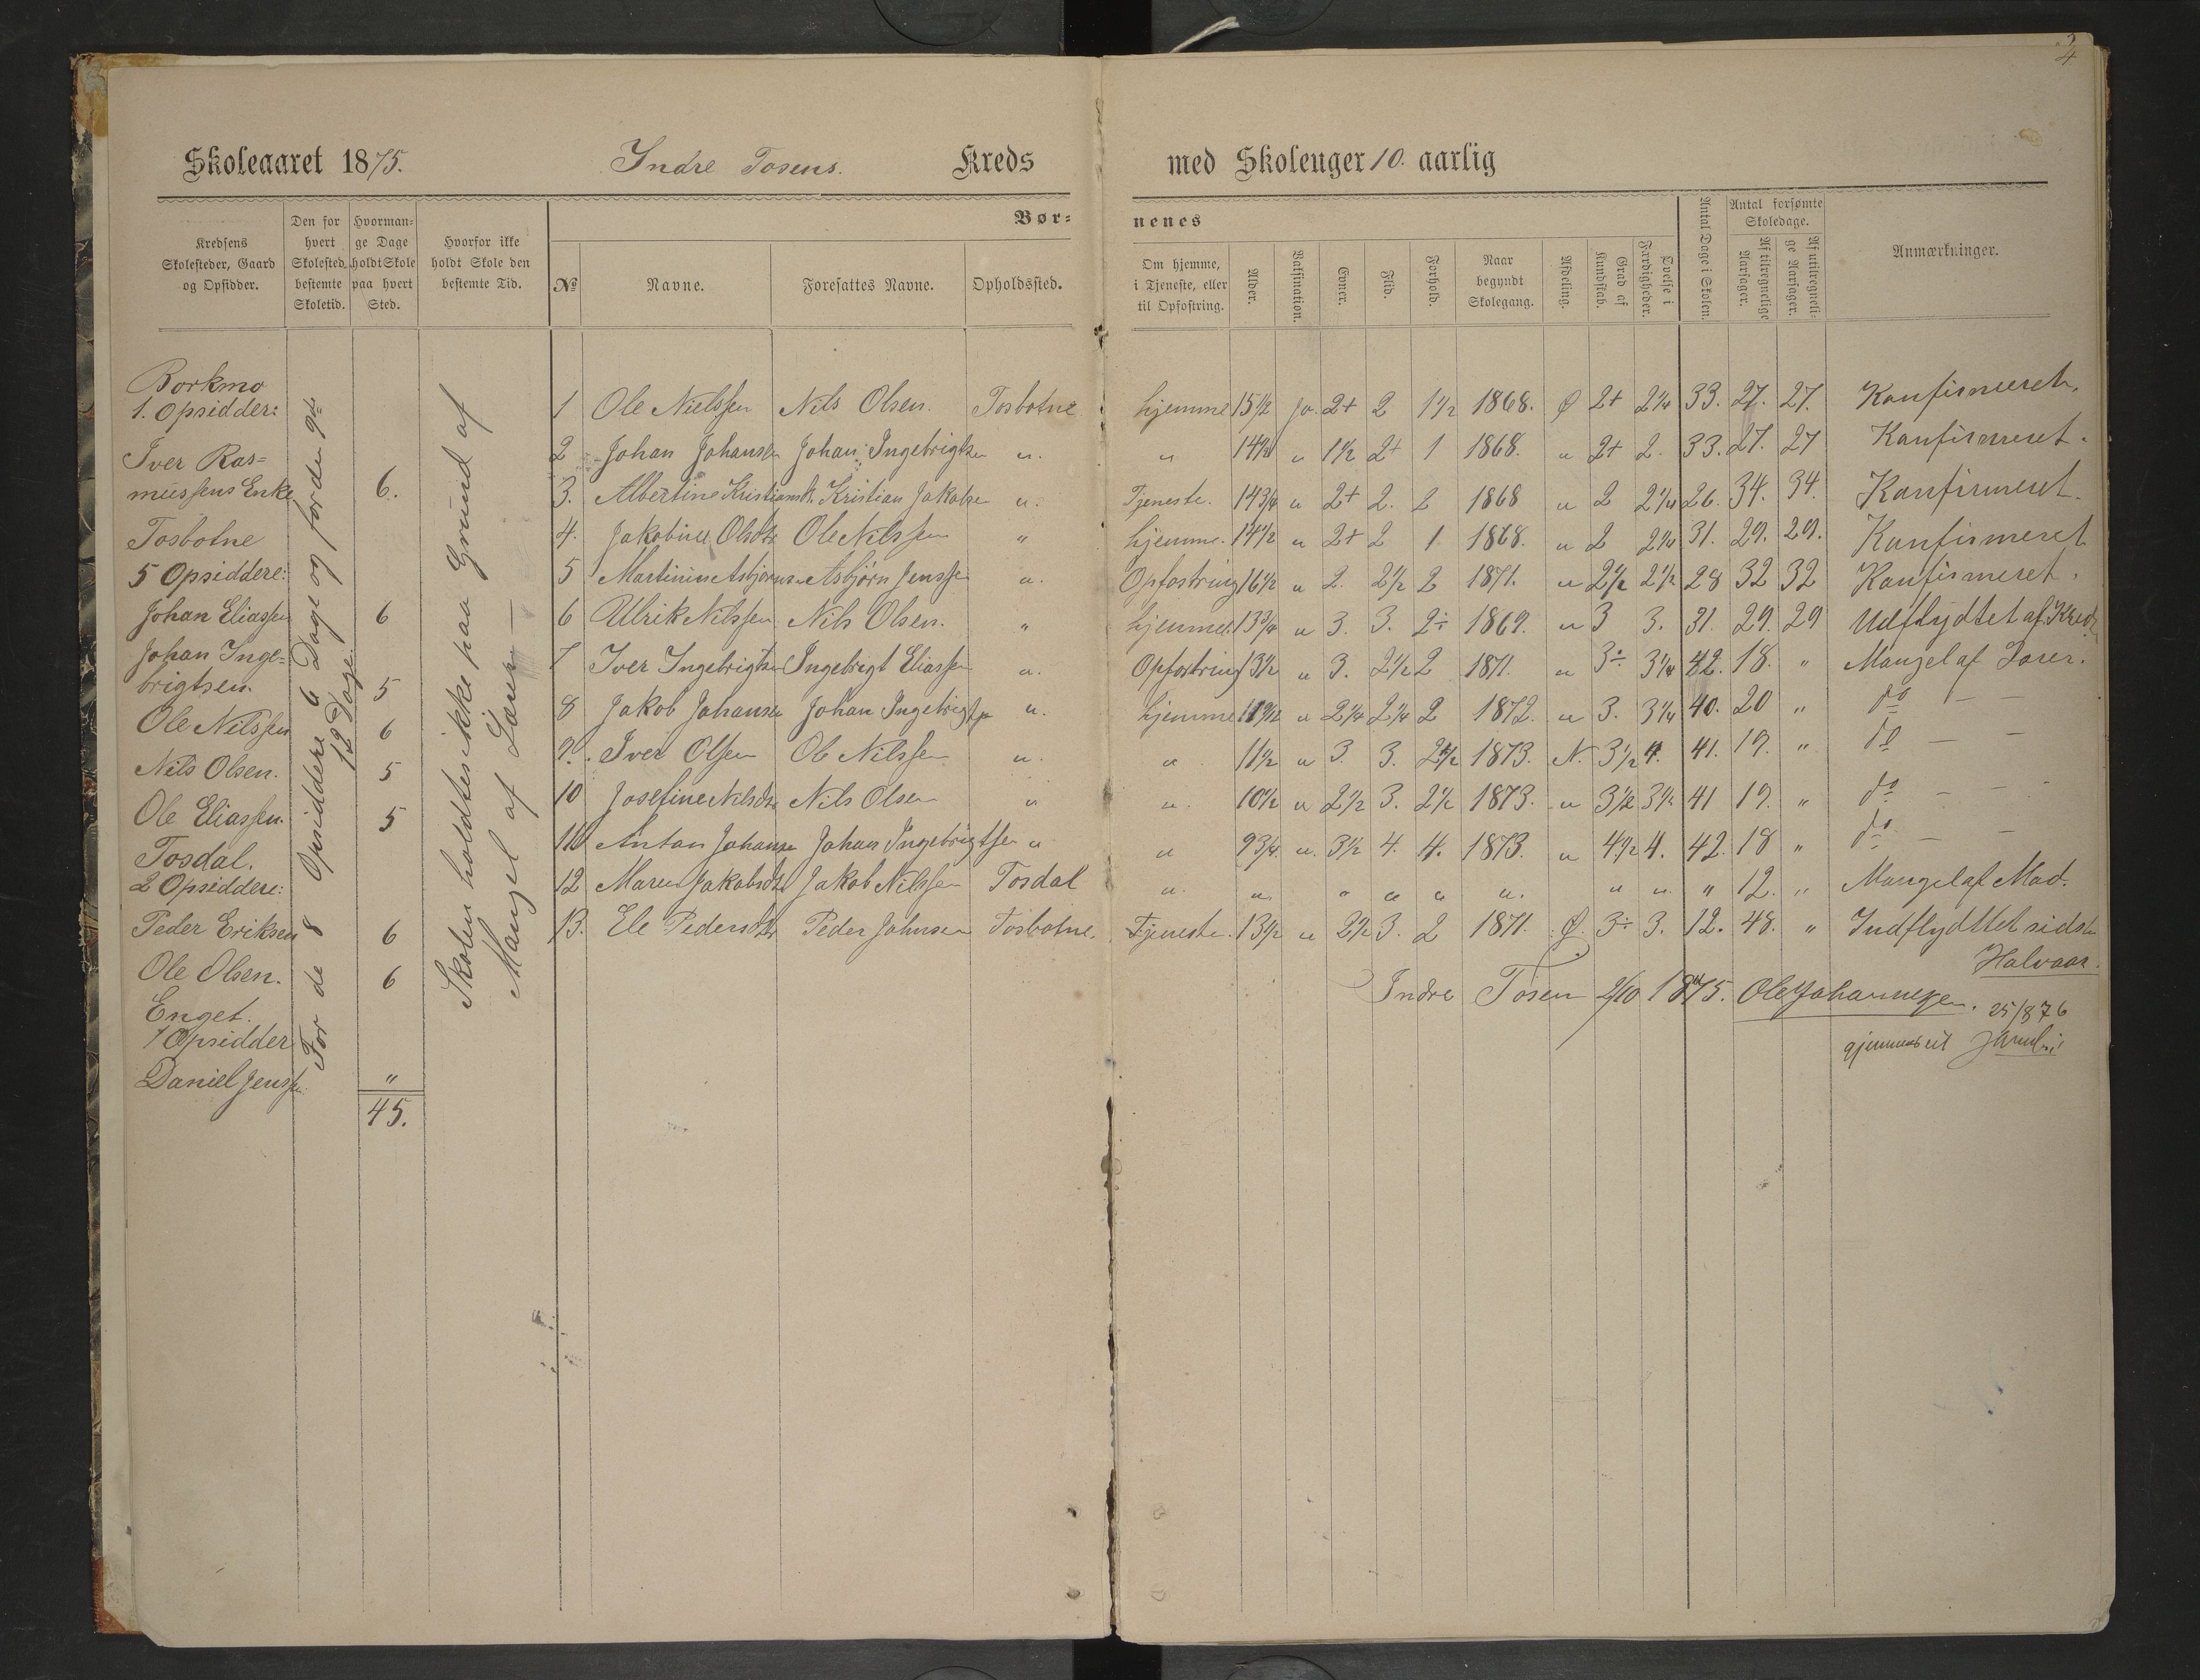 Skoleaaret 1875. Indre Tosens. Kreds med Skoleuger 10. aarlig
Kredsens Skolesteder, Gaard og Opsidder.
Den for hvert Skolested bestemte Skoletid.
Hvormange Dage holdt Skole paa hvert Sted.
Hvorfor ikke holdt Skole den bestemte Tid.
Børnenes
№
Navne.
Foresattes Navne.
Opholdssted.
Om hjemme, i Tjeneste, eller til Opfostring.
Alder.
Vaksination.
Evner.
Flid.
Forhold.
Naar begyndt Skolegang.
Afdeling.
Grad af Kundskab.
Øvelse i Færdigheder.
Antal Dage i Skolen.
Antal forsømte Skoledage.
Af tilregnelige Aarsager.
Af utilregnelige Aarsager.
Anmærkninger.
Borkmo
1. Opsidder:
Iver Ras=
mussens Enke 6.
Tosbotne
5 Opsiddere:
Johan Eliassen 6
Johan Inge=
brigtsen. 5
Ole Nilssen 6
Nils Olsen. 5
Ole Eliassen. 5
Tosdal.
2 Opsiddere:
Peder Eriksen 6
Ole Olsen. 6
Enget.
1 Opsidder
Daniel Jenssen "
45.
For de 8 Opsiddere 6 Dage og for den 9de
12 Dage.
Skolen holdtes ikke paa Grund af
Mangel af
1 Ole Nielssen Nils Olsen. Tosbotne hjemme 15½ ja. 2+ 2 1½ 1868. Ø 2+ 2¼ 33. 27. 27. Konfirmeret.
2 Johan Johansen Johan Ingebrigtsen " " 14½ " 1½ 2+ 1 1868. " 2+ 2. 33. 27. 27 Konfirmeret.
3. Albertine Kristiansdtr. Kristian Jakobsen " Tjeneste. 14¾ " 2+ 2. 2 1868 " 2 2¼ 26. 34. 34. Konfirmeret.
4. Jakobine Olsdtr Ole Nilssen " hjemme. 14½ " 2+ 2 1 1868. " 2 2¼ 31. 29. 29. Konfirmeret
5 Martinus Asbjørns. Asbjørn Jenssen " Opfostring 16½ " 2. 2½ 2 1871. " 2½ 2½ 28 32 32 Konfirmeret.
6 Ulrik Nilssen Nils Olsen. " hjemme. 13¾ " 3. 3. 2÷ 1869. " 3 3. 31. 29. 29 Udflydtet af Kreds
7 Iver Ingebrigtsen Ingebrigt Eliassen " Opfostring 13½ " 3. 2½ 2 1871. " 3÷ 3¼ 42. 18. " Mangel af
8 Jakob Johansen Johan Ingebrigts. " hjemme " 2¼ 2¼ 2 1872. " 3. 3¼ 40. 20 " do — —
9. Iver Olsen Ole Nilssen " " 11½ " 3. 3. 2½ 1873. N. 3½ 4. 41. 19. " do — —
10 Josefine Nilsdtr Nils Olsen " " 10½ " 2½ 3. 2½ 1873. " 3½ 3½ 41 19. " do — —
11 Anton Johansen Johan Ingebrigtsen " " 9¾ " 3½ 4. 4. 1873. " 4½ 4. 42. 18 " do — —
12 Maren Jakobsdtr Jakob Nilssen Tosdal " " " " " " " " " 12. " Mangel af Mad.
13. Ele Pedersdtr Peder Johnsen Tosbotne. Tjeneste. 13½ " 2½ 3. 2 1871. Ø. 3÷ 3. 12. 48. " Indflydttet sidste
Halvaar.
Indre Tosen 2/10 1875. Ole Johannesen.
25/8 76
gjennemseet